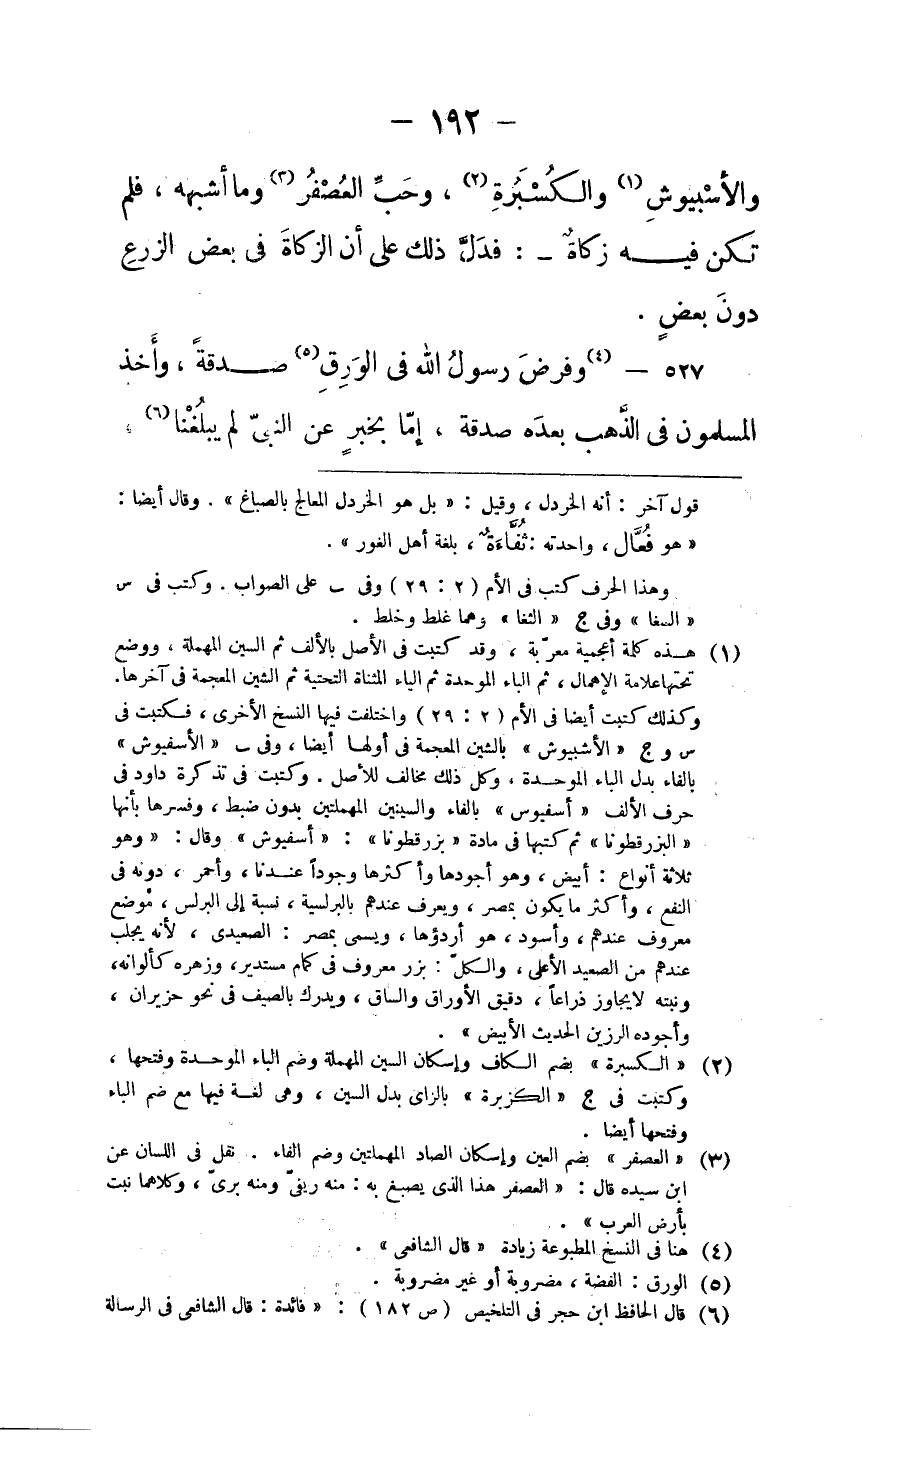 — ١٩٢ —
والأسْبيوشِ (١) والكُسْبَُرةِ (٢) ، وحَبِّ العُصْفُرِ (٣) وما أشبهه ، فلم
تكن فيه زكاةٌ ـ : فدَلَّ ذلك على أن الزكاةَ فى بعض الزرعِ
دونَ بعضٍ .
٥٢٧ — (٤) وفرضَ رسولُ الله فى الوَرِقِ (٥) صدقةً ، وأَخذ
المسلمون فى الذَّهب بعدَه صدقة ، إمّا بخبرٍ عن النبىّ لم يبلُغْنا (٦) ،
قول آخر : أنه الخردل ، وقيل : « بل هو الخردل المعالج بالصباغ » . وقال أيضا :
« هو فُعَّال ، واحدته : ثُفَّاءَةٌ ، بلغة أهل الغور » .
وهذا الحرف كتب فى الأم ( ٢ : ٢٩ ) وفى ب على الصواب . وكتب فى س
« السفا » وفى ج « الثغا » وهما غلط وخلط .
(١) هذه كلمة أعجمية معرّبة ، وقد كتبت فى الأصل بالألف ثم السين المهملة ، ووضع
تحتها علامة الإهمال ، ثم الباء الموحدة ثم الياء المثناة التحتية ثم الشين المعجمة فى آخرها.
وكذلك كتبت أيضا فى الأم ( ٢ : ٢٩ ) واختلفت فيها النسخ الأخرى ، فكتبت فى
س و ج « الأشبيوش » بالشين المعجمة فى أولها أيضا ، وفى ب « الأسفيوش »
بالفاء بدل الباء الموحدة ، وكل ذلك مخالف للأصل . وكتبت فى تذكرة داود فى
حرف الألف « أسفيوس » بالفاء والسينين المهملتين بدون ضبط ، وفسرها بأنها
« البزرقطونا » ثم كتبها فى مادة « بزرقطونا » : « أسفيوش » وقال : « وهو
ثلاثة أنواع : أبيض ، وهو أجودها وأكثرها وجوداً عندنا ، وأحمر ، دونه فى
النفع ، وأكثر ما يكون بمصر ، ويعرف عندهم بالبرلسية ، نسبة إلى البرلس ، موضع
معروف عندهم ، وأسود ، هو أردؤها ، ويسمى بمصر : الصعيدى ، لأنه يجلب
عندهم من الصعيد الأعلى ، والكلّ : بزر معروف فى كمام مستدير، وزهره كألوانه،
ونبته لايجاوز ذراعاً ، دقيق الأوراق والساق ، ويدرك بالصيف فى نحو حزيران ،
وأجوده الرزين الحديث الأبيض » .
(٢) « الكسبرة » بضم الكاف وإسكان السين المهملة وضم الباء الموحدة وفتحها ،
وكتبت فى ج « الكزبرة » بالزاى بدل السين ، وهى لغة فيها مع ضم الباء
وفتحها أيضا .
(٣) « العصفر » بضم العين وإسكان الصاد المهملتين وضم الفاء . نقل فى اللسان عن
ابن سيده قال : « العصفر هذا الذى يصبغ به : منه ريفىّ ومنه برىّ ، وكلاهما نبت
بأرض العرب » .
(٤) هنا فى النسخ المطبوعة زيادة « قال الشافعى » .
(٥) الورق : الفضة ، مضروبة أو غير مضروبة .
(٦) قال الحافظ ابن حجر فى التلخيص ( ص ١٨٢ ) : « فائدة : قال الشافعى فى الرسالة